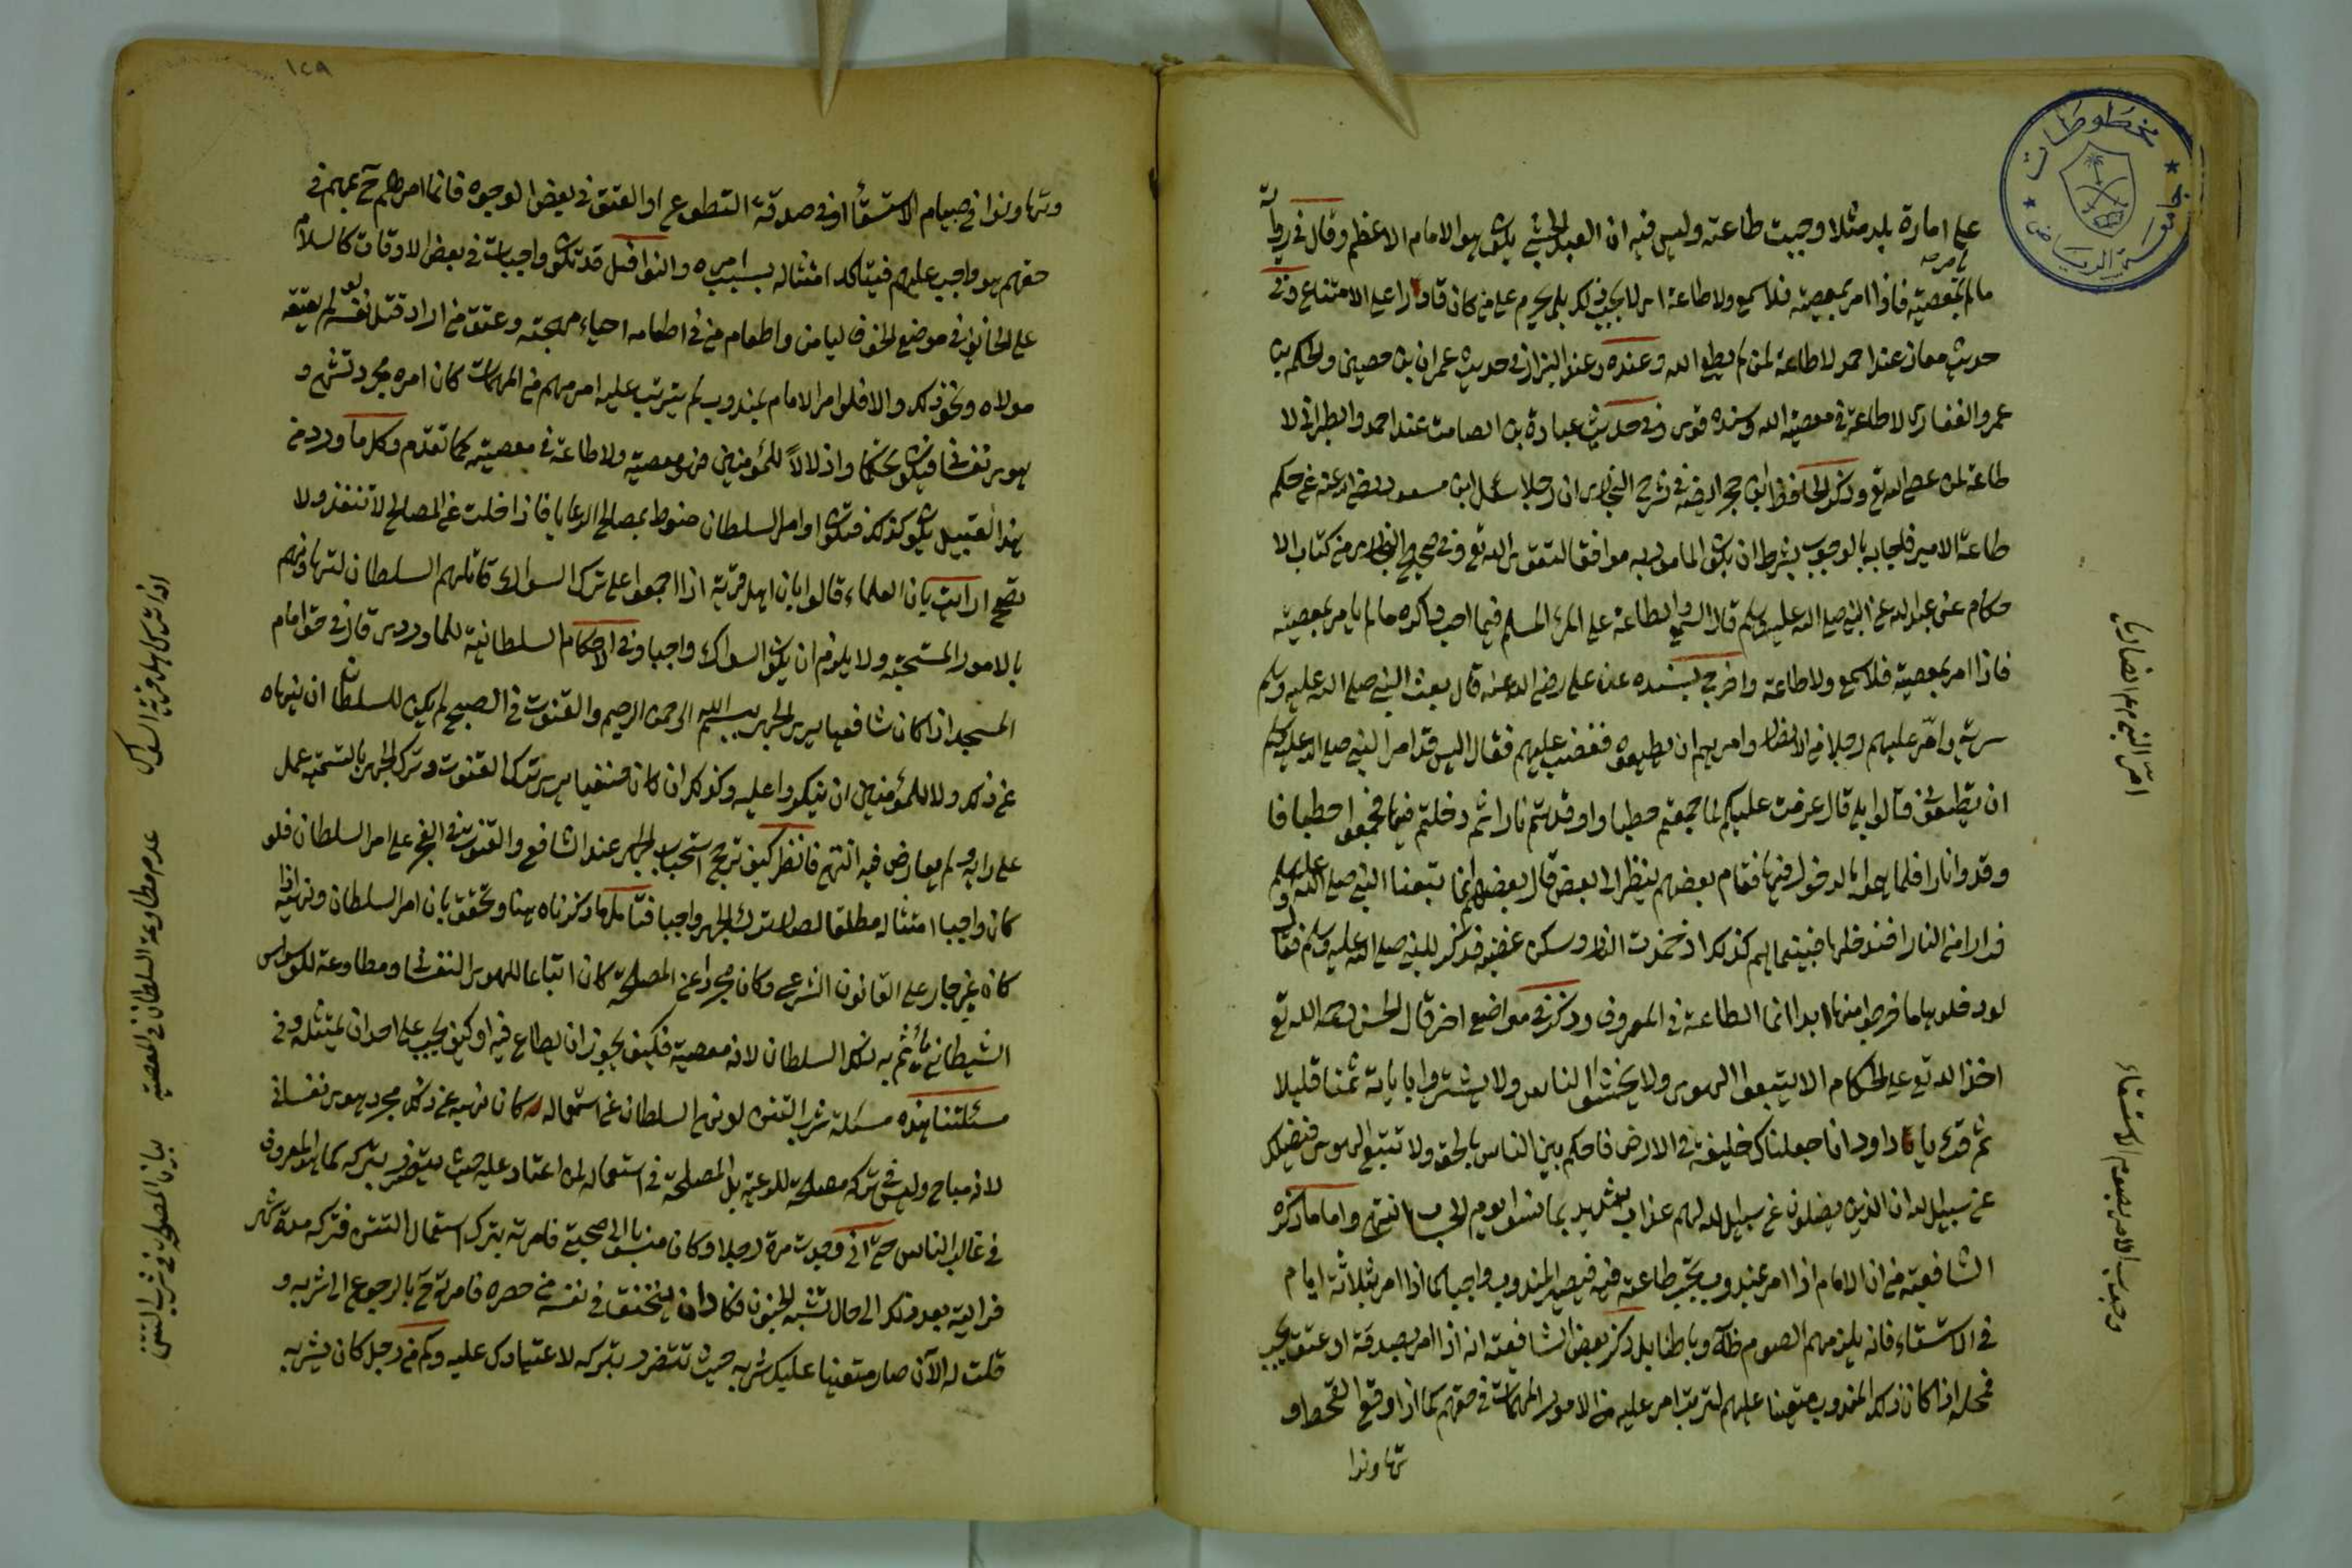 مخطوطات
جامعة الرياض
على امارة بلد مثلا وجبت طاعته وليس فيه ان العبد الحبشي يكون هو الامام الاعظم وقال في رواية
مالم بمعصية فاذا امر بمعصية فلا سمع ولا طاعة اي لا يجب ذلك بل يحرم على من كان قادرا على الامتناع وفي
حديث معاذ عند احمد لا طاعة لمن لم يطع الله وعنده وعند البزار في حديث عمران بن حصين والحكم بن
عمرو الغفاري لا طاعة في معصية الله وسنده قوي وفي حديث عبادة بن الصامت عند احمد والطبراني لا
طاعة لمن عصى الله تع وذكر الحافظ ابن حجر ايضا في شرح البخاري ان رجلا سئل ابن مسعود رضي الله عنه عن حكم
طاعة الامير فاجابه بالوجوب بشرط ان يكون المامور به موافقا لتقوى الله تع وفي صحيح البخاري من كتاب الا
حكام عن عبد الله عن النبي صلى الله عليه وسلم قال السمع والطاعة على المرء المسلم فيما احب وكره مالم يامر بمعصية
فاذا امر بمعصية فلا سمع ولا طاعة واخرج بسنده عن علي رضي الله عنه قال بعث النبي صلى الله عليه وسلم
سرية وامّر عليهم رجلا من الانصار وامرهم ان يطيعوه فغضب عليهم فقال اليس قد امر النبي صلى الله عليه وسلم
ان تطيعوني قالوا بلى قال عزمت عليكم لما جمعتم حطبا واوقدتم نارا ثم دخلتم فيها فجمعوا حطبا فا
وقدوا نارا فلما هموا بالدخول فيها فقام بعضهم ينظر الى بعض قال بعضهم انما تبعنا النبي صلى الله عليه وسلم
فرارا من النار افندخلها فبينما هم كذلك اذ خمدت النار وسكن غضبه فذكر للنبي صلى الله عليه وسلم فقال
لو دخلوها ما خرجوا منها ابدا انما الطاعة في المعروف وذكر في مواضع اخر قال الحسن رحمه الله تع
اخذ الله تع على الحكام الا يتبعوا الهوى ولا يخشوا الناس ولا يشتروا باياته ثمنا قليلا
ثم قرء يا داود انا جعلناك خليفة في الارض فاحكم بين الناس بالحق ولا تتبع الهوى فيضلك
عن سبيل الله ان الذين يضلون عن سبيل الله لهم عذاب شديد بما نسوا يوم الحساب انتهى واما ما ذكره
الشافعية من ان الامام اذا امر بمندوب تجب طاعته فيه فيصير المندوب واجبا كما اذا امر بثلاثة ايام
في الاستسقاء فانه يلزمهم الصوم ظاهرا وباطنا بل ذكر بعض الشافعية انه اذا امر بصدقة او عتق يجب
فمحله اذا كان ذلك المندوب متعينا عليهم لترتب امر عليه من الامور المهمات في حقهم كما اذا وقع القحط و
تهاونوا
امّر النبي م م انصاريا
وجوب الامر بصوم الاستسقاء
١٢٩
وتهاونوا في صيام الاستسقاء او في صدقة التطوع او العتق في بعض الوجوه فانما امرهم ح بمهم في
حقهم هو واجب عليهم فيتاكد امتثاله بسبب امره والنوافل قد تكون واجبات في بعض الاوقات كالسلام
على الخائف في موضع الخوف ليامن واطعام من في اطعامه احياء مهجته وعتق من اراد قتل نفسه لو لم يعتقه
مولاه ونحو ذلك والا فلو امر الامام بمندوب لم يترتب عليه امر مهم من المهمات كان امره مجرد تشهي و
هوى نفساني فيكون تحكما واذلالاً للمؤمنين فهو معصية ولا طاعة في معصية كما تقدم وكل ما ورد من
هذا القبيل يكون كذلك فتكون اوامر السلطان منوط بمصالح الرعايا فاذا خلت عن المصالح لا تنفذ ولا
يقع ارايت بان العلماء قالوا بان اهل قرية اذا اجمعوا على ترك السواك قاتلهم السلطان لتهاونهم
بالامور المستحبة ولا يلزم ان يكون السواك واجبا وفي الاحكام السلطانية للماوردي قال في حق امام
المسجد اذا كان شافعيا يرى الجهر ببسم الله الرحمن الرحيم والقنوت في الصبح لم يكن للسلطان ان ينهاه
عن ذلك ولا للمؤمنين ان ينكروا عليه وكذلك ان كان حنفيا يرى ترك القنوت وترك الجهر بالتسمية عمل
على رايه ولم يعارض فيه انتهى فانظر كيف ترجح استحباب الجهر عند الشافعي والقنوت في الفجر على امر السلطان فلو
كان واجبا امتثاله مطلقا لصار ترك الجهر واجبا فتامل ما ذكرناه هنا وتحقق بان امر السلطان ونهيه اذا
كان غير جار على القانون الشرعي وكان مجردا عن المصلحة كان اتباعا للهوى النفساني ومطاوعة للوسواس
الشيطاني يأثم به ذلك السلطان لانه معصية فكيف يجوز ان يطاع فيه او كيف يجب على احد ان يمتثله وفي
مسئلتنا هذه مسئلة شرب التتن لو نهى السلطان عن استعماله كان نهيه عن ذلك مجرد هوى نفساني
لانه مباح وليس في تركه مصلحة للرعية بل المصلحة في استعماله لمن اعتاد عليه حيث يتضرر بتركه كما هو المعروف
في غالب الناس حتى اني وجدت مرة رجلا وكان منسوبا الى صحبتي فامرته بترك استعمال التتن فتركه مدة شهر
فرايته بعد ذلك الى حال تشبه الجنون فكاد ان يختنق في نفسه من حصره فامرته ح بالرجوع الى شربه و
قلت له الآن صار متعينا عليك شربه حيث تتضرر بتركه لاعتيادك عليه وكم من رجل كان يشربه
اذا ترك اهل قرية السواك
عدم مطاوعة السلطان في المعصية
بيان المصلحة في شرب التتن